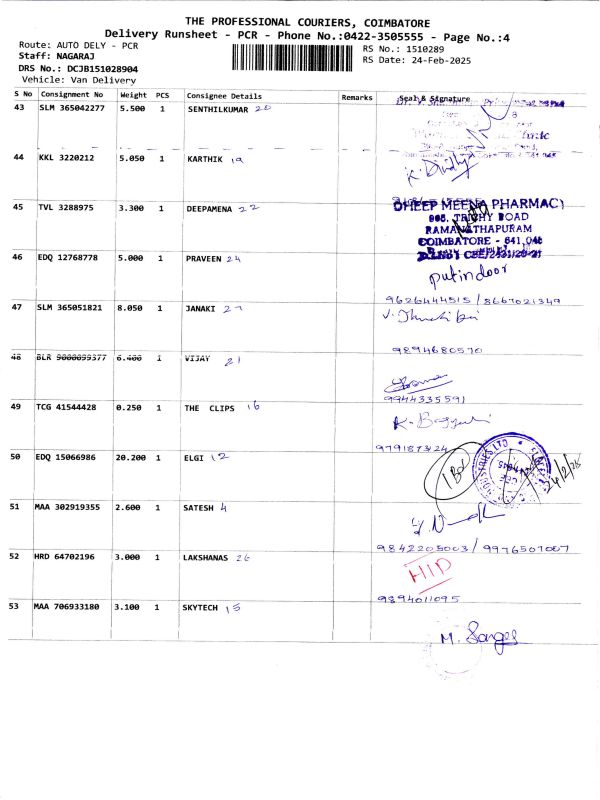 THE PROFESSIONAL COURIERS, COIMBATORE
Delivery Runsheet - PCR - Phone No.:0422-3505555 - Page No.:4
Route: AUTO DELY - PCR
Staff: NAGARAJ
DRS No.: DCJB151028904
Vehicle: Van Delivery
RS No.: 1510289
RS Date: 24-Feb-2025
S No Consignment No Weight PCS Consignee Details Remarks Seal & Signature
43 SLM 365042277 5.500 1 SENTHILKUMAR 20
44 KKL 3220212 5.050 1 KARTHIK 19
45 TVL 3288975 3.300 1 DEEPAMENA 22
DHEEP MEENA PHARMACY
TRICHY ROAD
RAMANATHAPURAM
COIMBATORE - 641 045
46 EDQ 12768778 5.000 1 PRAVEEN 24
putindoor
9626444515 / 8667021349
47 SLM 365051821 8.050 1 JANAKI 27
9894680570
48 BLR 9000099377 6.400 1 VIJAY 21
9944335591
49 TCG 41544428 0.250 1 THE CLIPS 16
9791873424
50 EDQ 15066986 20.200 1 ELGI 12
24/2/25
51 MAA 302919355 2.600 1 SATESH 4
9842205003 / 9976507007
52 HRD 64702196 3.000 1 LAKSHANAS 26
HID
9894011095
53 MAA 706933180 3.100 1 SKYTECH 15